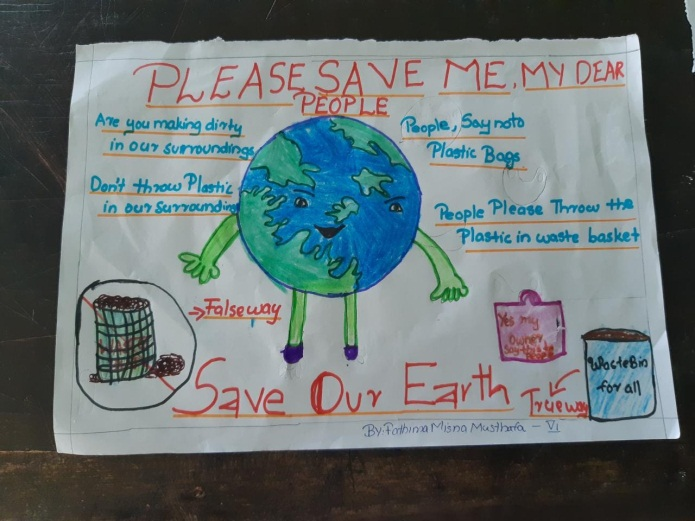 PLEASE SAVE ME, MY DEAR
PEOPLE
Are you making dirty
in our surroundings
Don't throw Plastic
in our surrounding
People, Say no to
Plastic Bags
People Please Throw the
Plastic in waste basket
Falseway
Yes my
owner
Waste Bin
for all
Trueway
Save Our Earth
By: Fathima Misna Musthafa - VI